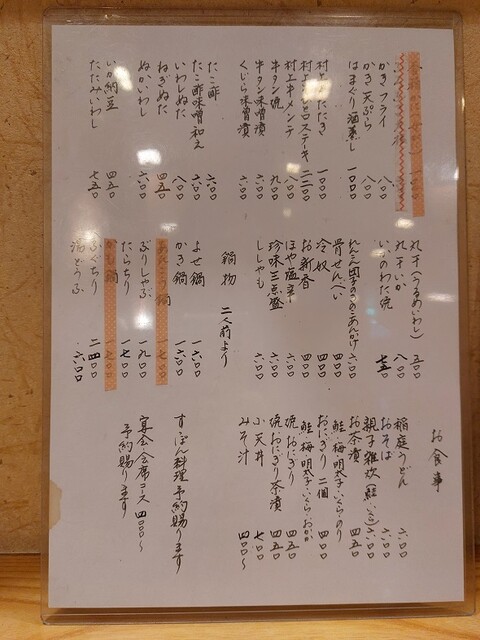 かきフライ 八〇〇
かき天ぷら 八〇〇
はまぐり酒蒸し 一〇〇〇
村上牛たたき 一三〇〇
村上牛ヒレステーキ 二二〇〇
村上牛メンチ 八〇〇
牛タン焼 九〇〇
牛タン味噌漬 六〇〇
くじら味噌漬 六〇〇
たこ酢 六〇〇
たこ酢味噌和え 六〇〇
いわしぬた 八〇〇
ねぎぬた 四五〇
ぬかいわし 六〇〇
いか納豆 四五〇
たたみいわし 七五〇
丸干(うるめいわし) 五〇〇
丸干いか 八〇〇
いかのわた焼 七五〇
れんこん団子のきのこあんかけ 六〇〇
骨せんべい 四〇〇
冷奴 四〇〇
お新香 四〇〇
ほや塩辛 六〇〇
珍味三点盛 六〇〇
ししゃも 六〇〇
鍋物 二人前より
よせ鍋 一六〇〇
かき鍋 一六〇〇
あんこう鍋 一七〇〇
ぶりしゃぶ 一九〇〇
たらちり 一七〇〇
かも鍋 一七〇〇
ふぐちり 二四〇〇
湯どうふ 六〇〇
お食事
稲庭うどん 六〇〇
おそば 六〇〇
親子雑炊(鮭・いくら) 六〇〇
お茶漬 四五〇
鮭・梅・明太子・いくら・のり
おにぎり 二個 四〇〇
鮭・梅・明太子・いくら・おかか
焼おにぎり 四五〇
焼おにぎり茶漬 四五〇
小天丼 七〇〇
みそ汁 四〇〇〜
すっぽん料理予約賜ります
宴会・会席コース 四〇〇〇〜
予約賜ります